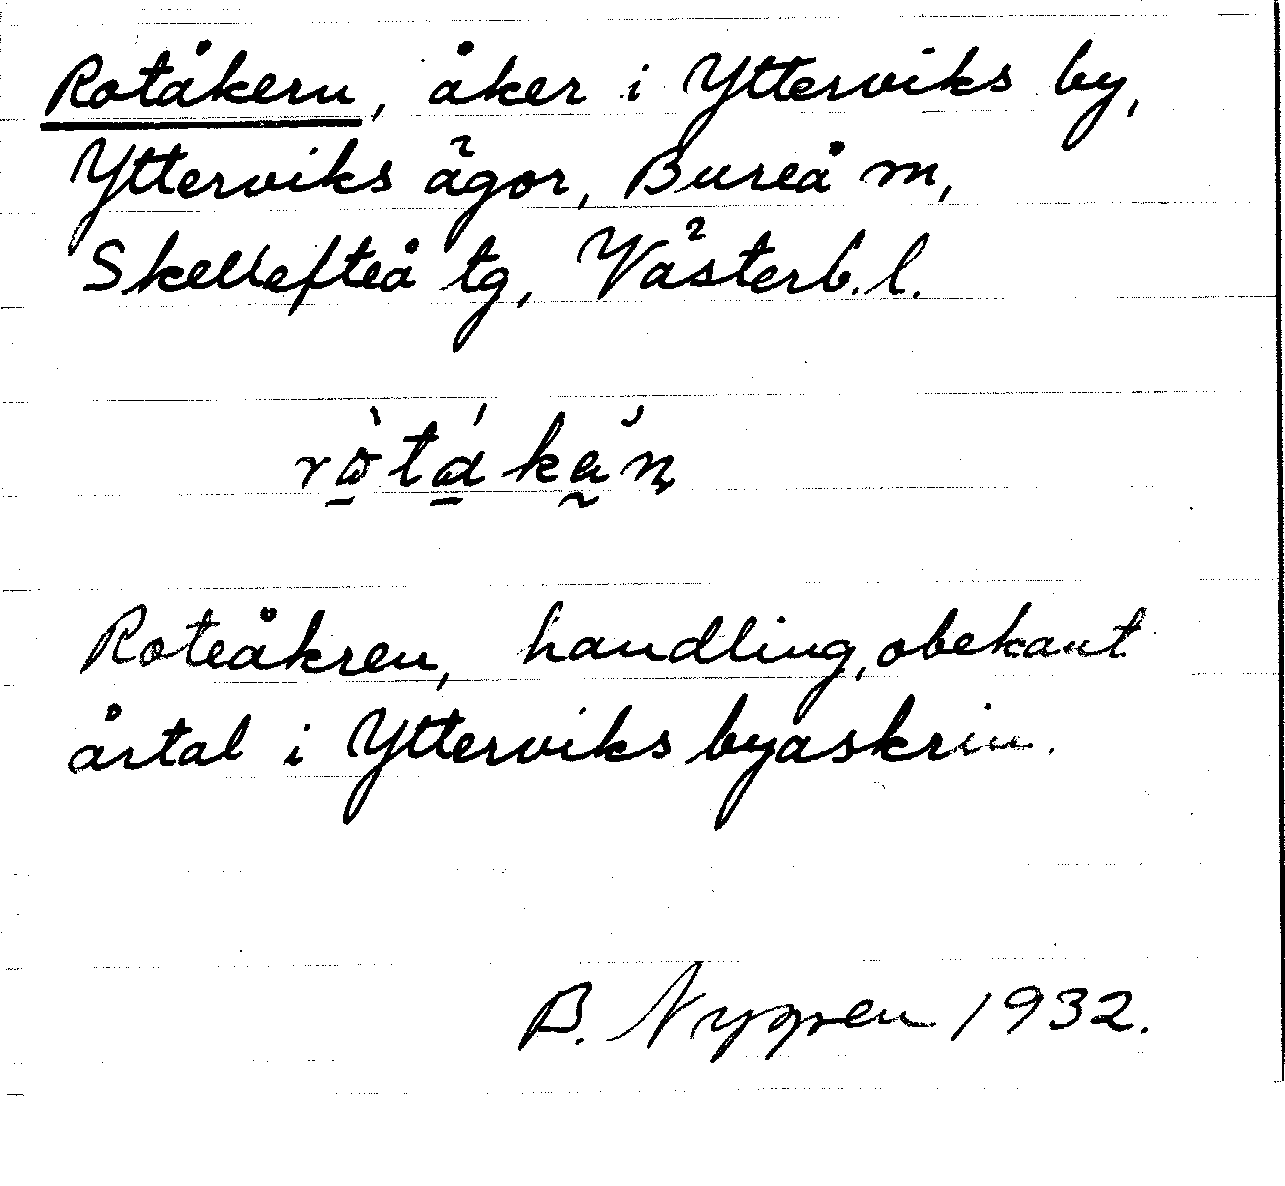 Rotåkern, åker i Ytterviks by,
Ytterviks ägor, Bureå m,
Skellefteå tg, Västerb. l.
Roteåkren, handling, obekant
årtal i Ytterviks byaskrin.
B. Nygren 1932.